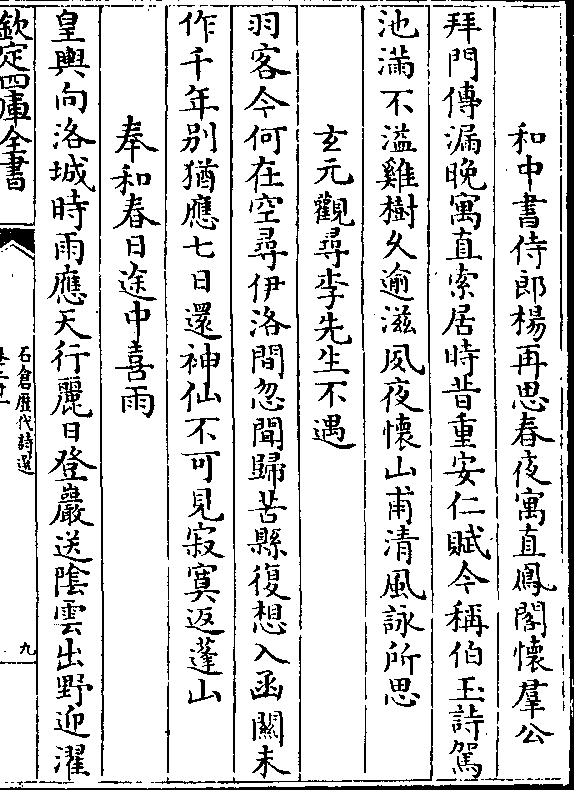 和中書侍郎楊再思春夜寓直鳳閣懷羣公
拜門傳漏晚寓直索居時昔重安仁賦今稱伯玉詩鴛
池滿不溢雞樹久逾滋夙夜懷山甫清風詠所思
玄元觀尋李先生不遇
羽客今何在空尋伊洛間忽聞歸苦縣復想入函關未
作千年別猶應七日還神仙不可見寂寞返蓬山
奉和春日途中喜雨
皇輿向洛城時雨應天行麗日登巖送陰雲出野迎濯
欽定四庫全書
石倉歴代詩選
九